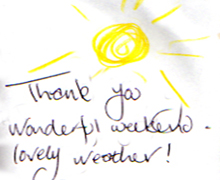 Thank you
wonderful weekend.
lovely weather!